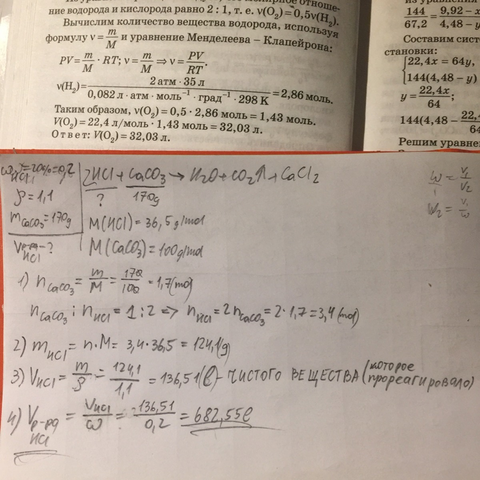 ние водорода и кислорода равно 2 : 1, т. е. ν(O₂) = 0,5ν(H₂).
Вычислим количество вещества водорода, используя
формулу ν = m/M и уравнение Менделеева – Клапейрона:
PV = m/M · RT; ν = m/M ⇒ ν = PV/RT.
ν(H₂) = 2 атм · 35 л / 0,082 л · атм · моль⁻¹ · град⁻¹ · 298 К = 2,86 моль.
Таким образом, ν(O₂) = 0,5 · 2,86 моль = 1,43 моль.
V(O₂) = 22,4 л/моль · 1,43 моль = 32,03 л.
Ответ: V(O₂) = 32,03 л.
144/67,2 = 9,92 – x/4,48 – y
Составим систе
становки:
22,4x = 64y,
144(4,48 – y)
y = 22,4x/64;
144(4,48 – 22,
Решим уравне
ω HCl = 20% = 0,2
ρ = 1,1
m CaCO₃ = 170g
V р-ра HCl – ?
2HCl + CaCO₃ → H₂O + CO₂↑ + CaCl₂
? 170g
M(HCl) = 36,5 g/mol
M(CaCO₃) = 100 g/mol
ω/1 = V₁/V₂
V₂ = V₁/ω
1) n CaCO₃ = m/M = 170/100 = 1,7 (mol)
n CaCO₃ : n HCl = 1 : 2 => n HCl = 2 n CaCO₃ = 2 · 1,7 = 3,4 (mol)
2) m HCl = n · M = 3,4 · 36,5 = 124,1 g
3) V HCl = m/ρ = 124,1/1,1 = 136,51 (l) – чистого вещества (которое прореагировало)
4) V р-ра HCl = V HCl/ω = 136,51/0,2 = 682,55 l